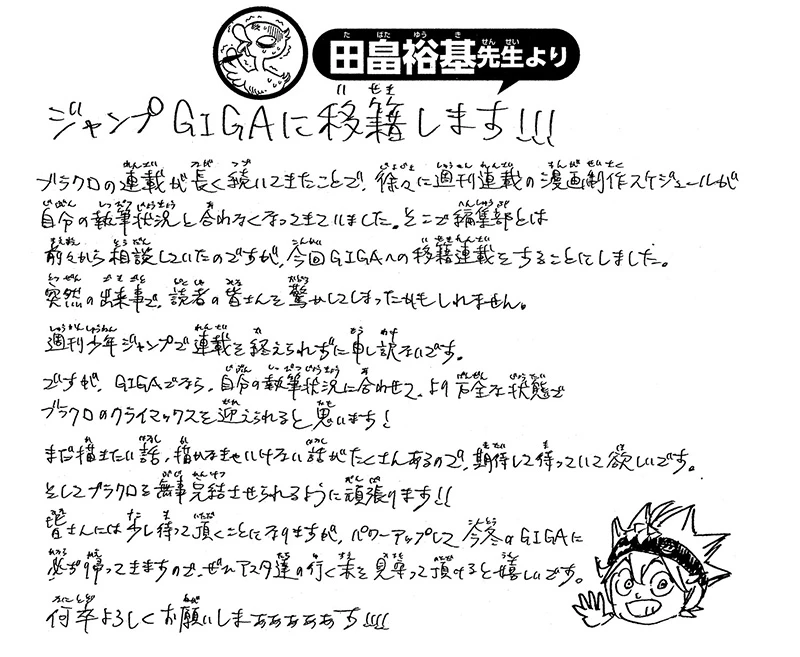 田畠裕基先生より
ジャンプGIGAに移籍します!!!
ブラクロの連載が長く続いてきたことで、徐々に週刊連載の漫画制作スケジュールが
自分の執筆状況と合わなくなってきていました。そこで編集部とは
前々から相談していたのですが、今回GIGAへの移籍連載をすることにしました。
突然の出来事で、読者の皆さんを驚かしてしまったかもしれません。
週刊少年ジャンプで連載を終えられずに申し訳ないです。
ですが、GIGAでなら、自分の執筆状況に合わせて、より万全な状態で
ブラクロのクライマックスを迎えられると思います!
まだ描きたい話、描かなきゃいけない話がたくさんあるので、期待して待っていて欲しいです。
そしてブラクロを無事完結させられるように頑張ります!!
皆さんには少し待って頂くことになりますが、パワーアップして今冬のGIGAに
必ず帰ってきますので、ぜひアスタ達の行く末を見守って頂けると嬉しいです。
何卒よろしくお願いしまぁぁぁぁぁす!!!!